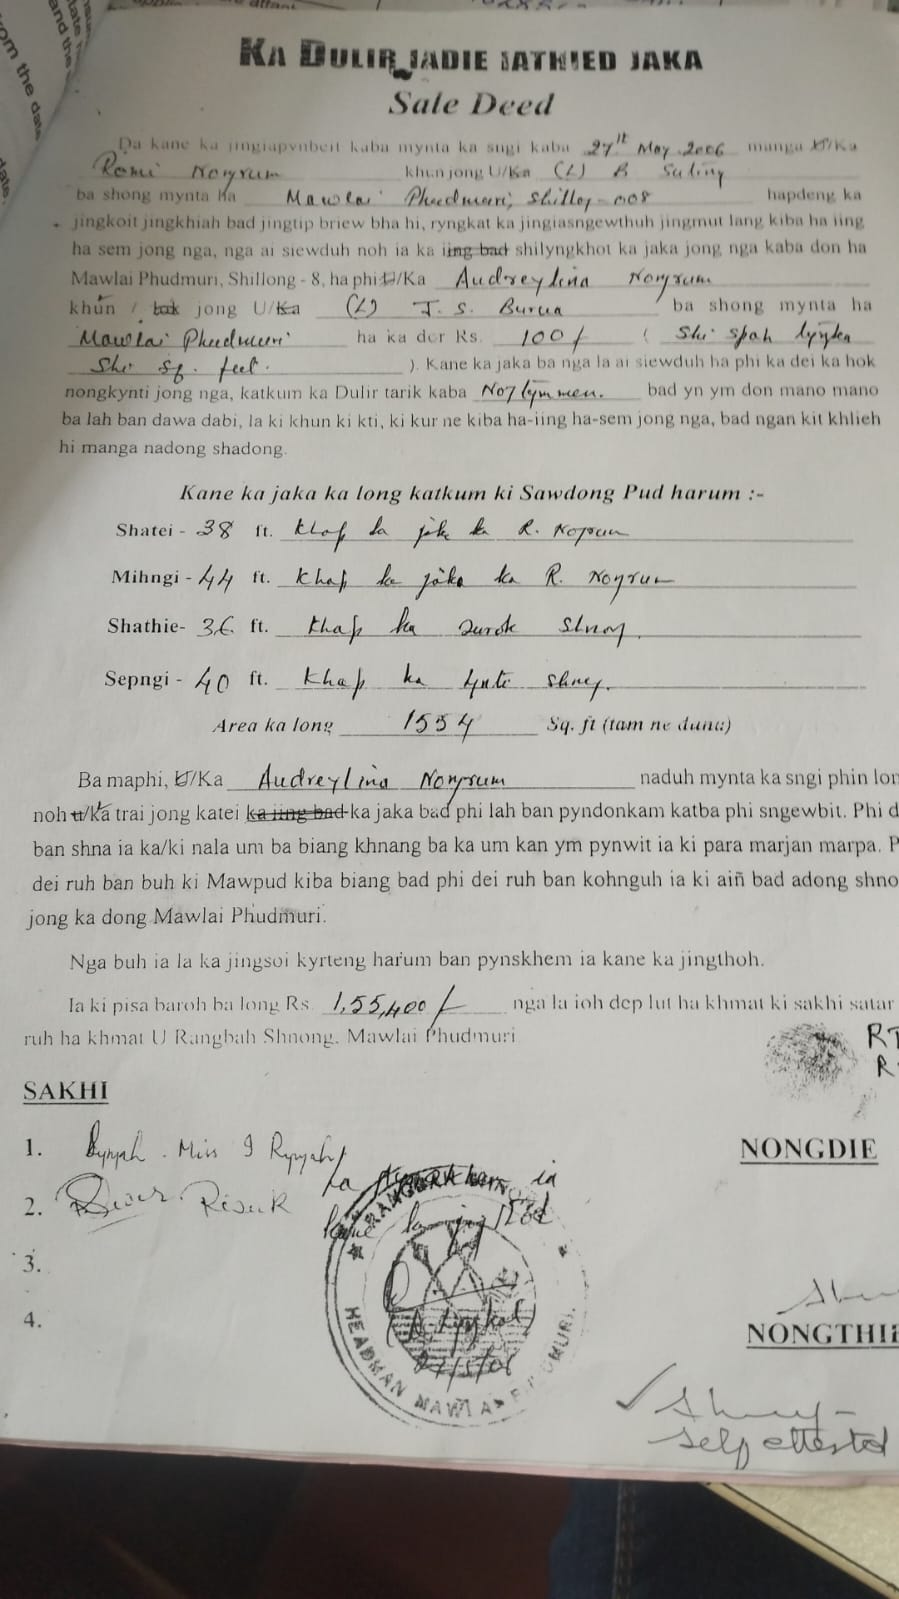 KA DULIR JADIE JATHIED JAKA
Sale Deed
Da kane ka jingiapynbeit kaba mynta ka sngi kaba 27th May 2006 manga U/Ka
Romi Nongrum khun jong U/Ka (L) B Suting
ba shong mynta ha Mawlai Phudmuri, Shillong-008 hapdeng ka
jingkoit jingkhiah bad jingtip briew bha hi, ryngkat ka jingiasngewthuh jingmut lang kiba ha iing
ha sem jong nga, nga ai siewduh noh ia ka iing bad shilyngkhot ka jaka jong nga kaba don ha
Mawlai Phudmuri, Shillong - 8, ha phi U/Ka Audreylina Nongrum
khun / jong U/Ka (L) J. S. Burua ba shong mynta ha
Mawlai Phudmuri ha ka dor Rs. 100/ ( Shi spah tyngka
Shi sq. feet. ). Kane ka jaka ba nga la ai siewduh ha phi ka dei ka hok
nongkynti jong nga, katkum ka Dulir tarik kaba bad yn ym don mano mano
ba lah ban dawa dabi, la ki khun ki kti, ki kur ne kiba ha-iing ha-sem jong nga, bad ngan kit khlieh
hi manga nadong shadong.
Kane ka jaka ka long katkum ki Sawdong Pud harum :-
Shatei - 38 ft. Khap ka jaka ka R. Nongrum
Mihngi - 44 ft. Khap ka jaka ka R. Nongrum
Shathie- 36 ft. Khap ka surok shnong.
Sepngi - 40 ft. Khap ka lynti shnong.
Area ka long 1554 Sq. ft (tam ne duna)
Ba maphi, U/Ka Audreylina Nongrum naduh mynta ka sngi phin lon
noh u/ka trai jong katei ka iing bad ka jaka bad phi lah ban pyndonkam katba phi sngewbit. Phi d
ban shna ia ka/ki nala um ba biang khnang ba ka um kan ym pynwit ia ki para marjan marpa. P
dei ruh ban buh ki Mawpud kiba biang bad phi dei ruh ban kohnguh ia ki aiñ bad adong shno
jong ka dong Mawlai Phudmuri.
Nga buh ia la ka jingsoi kyrteng harum ban pynskhem ia kane ka jingthoh.
Ia ki pisa baroh ba long Rs. 1,55,400/ nga la ioh dep lut ha khmat ki sakhi satar
ruh ha khmat U Rangbah Shnong, Mawlai Phudmuri
RT
R
SAKHI
NONGDIE
1. Miss I Rynjah
2. Risuk
3.
4.
HEADMAN MAWLAI PHUDMURI
NONGTHIE
Self attested